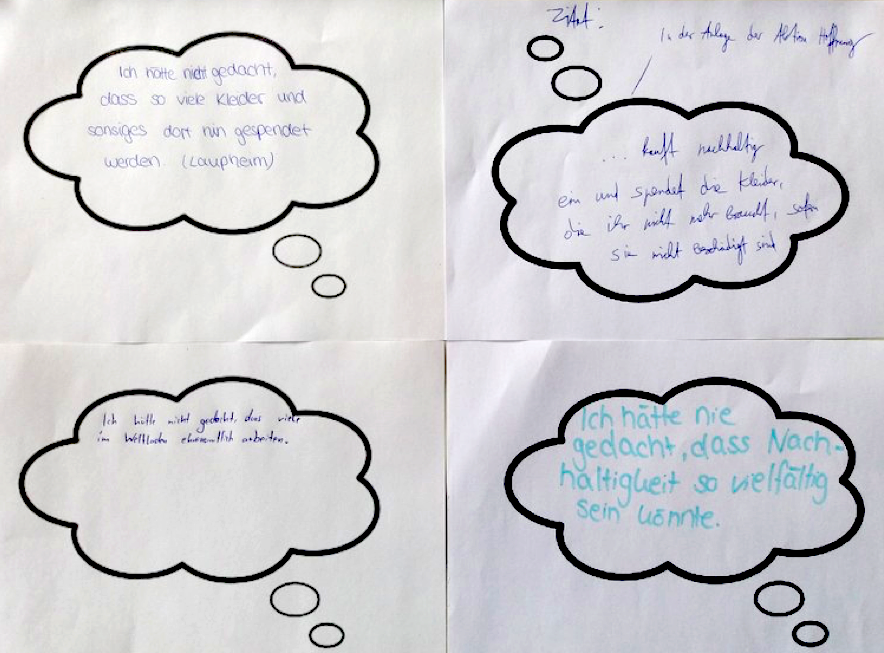 Ich hätte nicht gedacht,
dass so viele Kleider und
sonsiges dort hin gespendet
werden. (Laupheim)
Zitat:
In der Anlage der Aktion Hoffnung
... kauft nachhaltig
ein und spendet die Kleider,
die ihr nicht mehr braucht, sofern
sie nicht beschädigt sind
Ich hätte nicht gedacht, das viele
im Weltladen ehrenamtlich arbeiten.
Ich hätte nie
gedacht, dass Nach-
haltigkeit so vielfältig
sein könnte.